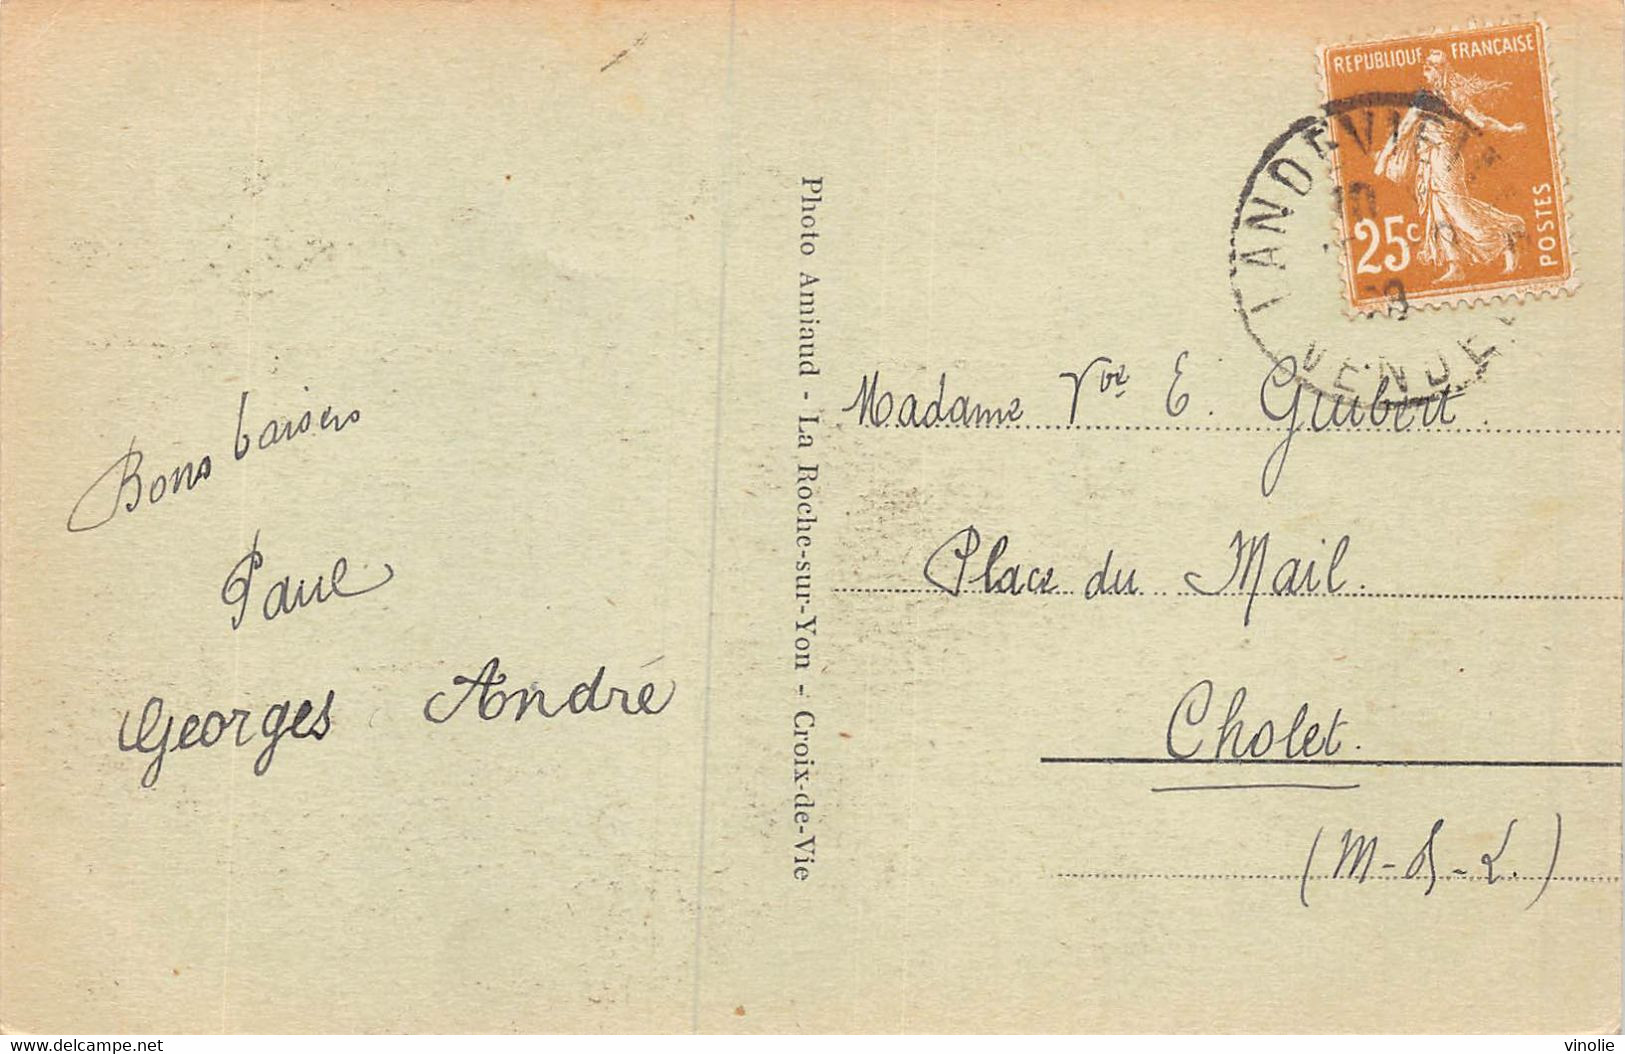 Bons baisers
Paul
Georges André
Photo Amiaud - La Roche-sur-Yon - Croix-de-Vie
REPUBLIQUE FRANÇAISE
25c
POSTES
LANDEVIEILLE
VENDEE
Madame Vve E. Guibert
Place du Mail.
Cholet.
(M-&-L.)
www.delcampe.net
vinolie